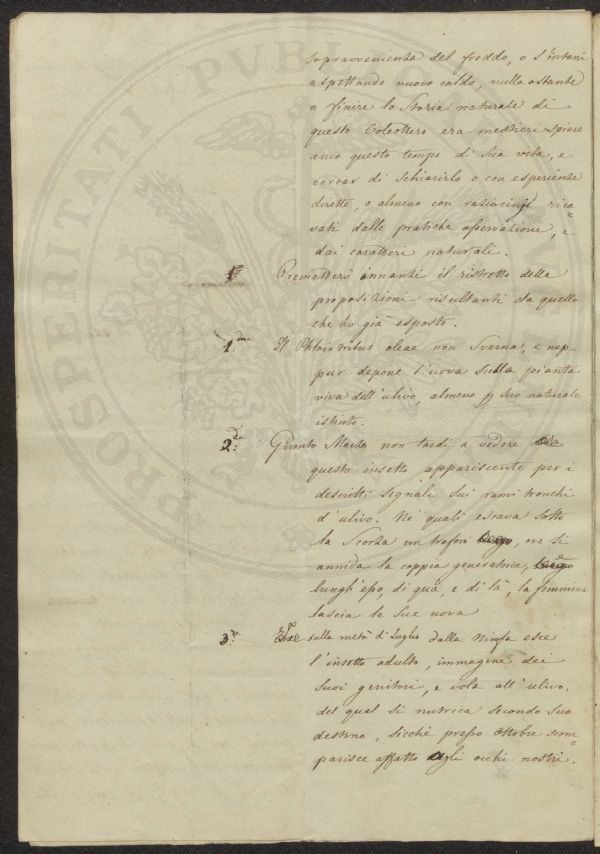 sopravvenienza del freddo, o s'intani
aspettando nuovo caldo, nulla ostante
a finire la Storia naturale di
questo Coleottero era mestieri spiare
anco questo tempo di sua vita, e
cercar di schiarirlo o con esperienze
dirette, o almeno con raziocinj rica=
vati dalle pratiche osservazione, e
dai caratteri naturali.
Premetterò innanzi il ristretto delle
proposizioni risultanti da quello
che ho già esposto.
1.ma Il Phloiotribus oleae non sverna, e nep=
pur depone l'uova sulla pianta
viva dell'ulivo, almeno p suo naturale
istinto.
2.da Giunto Marzo non tardi a vedere
questo insetto appariscente per i
descritti segnali sui rami tronchi
d'ulivo. Ne' quali escava sotto
la scorza un trafori, ove si
annida la coppia generatrice, e
lungh'esso, di quà, e di là, la femmina
lascia le sue uova
3. sulla metà di Luglio dalla Ninfa esce
l'insetto adulto, immagine dei
suoi genitori, e vola all'ulivo,
del qual si nutrica secondo suo
destino, sicchè presso Ottobre scom=
parisce affatto agli occhi nostri.
PVBLI
PROSPERITATI